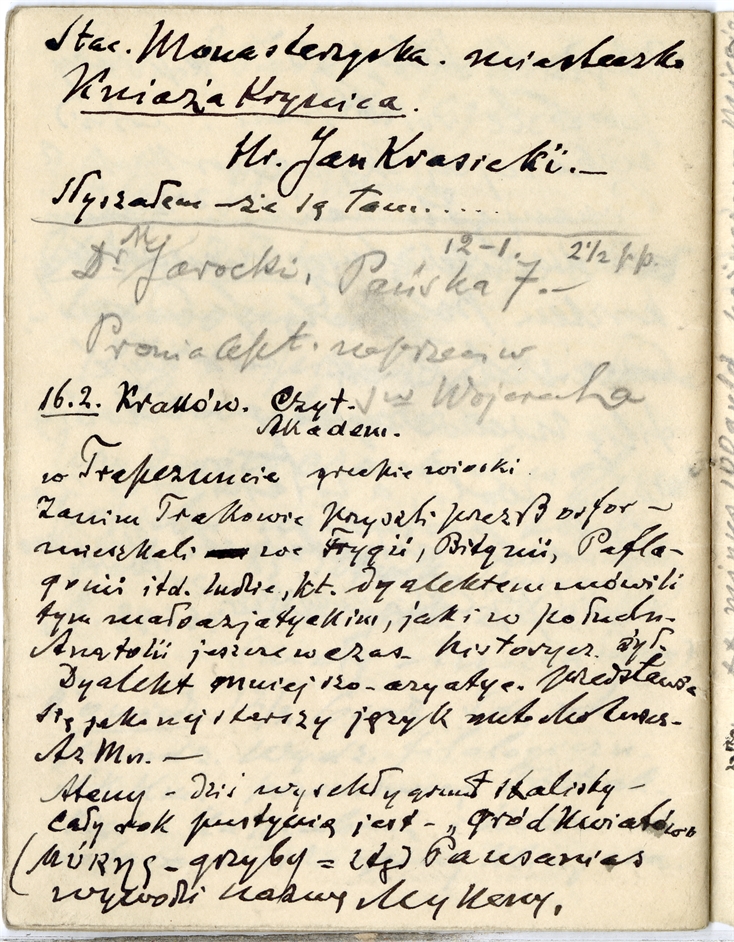 Stac. Monasterzyska. miasteczko
Kniaża Krynica.
Hr. Jan Krasicki. —
Słyszałem – że są tam.....
Dr M Jarocki, Pańska 7. — 12–1. 2½ p.p.
naprzeciw
św Wojciecha
16.2. Kraków. Czyt.
Akadem.
w Trapezuncie greckie wioski.
Zanim Trakowie przyszli przez Bosfor –
mieszkali we Frygii, Bitynii, Pafla-
gonii itd. ludzie, kt. dyalektem mówili
tym małoazjatyckim, jaki w połudn.
Anatolii jeszcze wczas. historycz. żył.
Dyalekt mniejszo-azyatyc. przedstawia
się jako najstarszy język
Az Mn. —
Ateny – dziś wyschły grunt skalisty –
cały rok pustynią jest – „gród kwiatów"
(Múkης – grzyby = stąd Pausanias
wywodzi nazwę Mykeny.